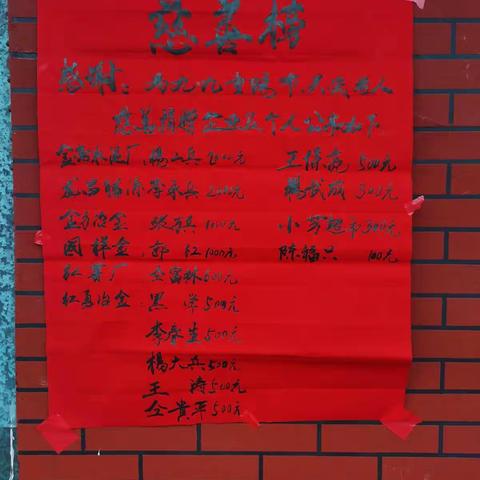 慈善榜
感谢：为九九重阳节大深老人
慈善捐赠企业及个人公布如下
金 水泥厂 杨小兵 2000元 王保亮 500元
龙昌 李永兵 2000元 杨武成 300元
金 冶金 张 兵 1000元 小芳超市 300元
国祥金 郭红 1000元 陈福兴 100元
红 厂 仝富林 600元
红 冶金 黑 500元
李春生 500元
杨大兵 500元
王涛 500元
仝贵平 500元